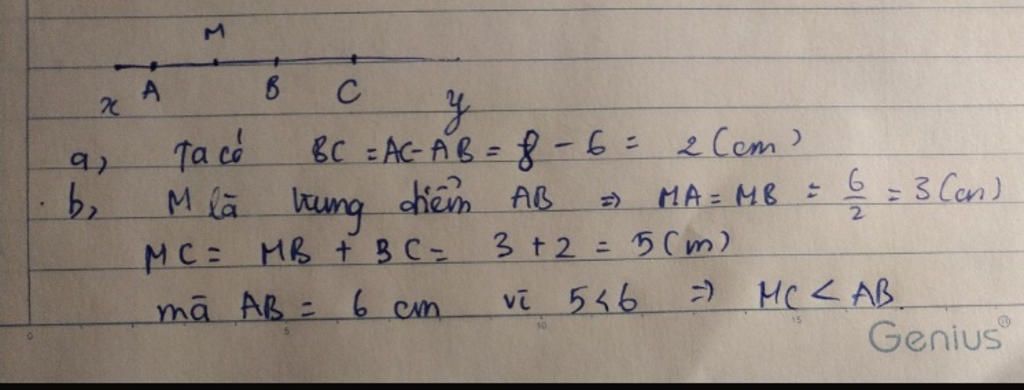 M
x A B C y
a, Ta có BC = AC - AB = 8 - 6 = 2 (cm)
b, M là trung điểm AB => MA = MB = 6/2 = 3 (cm)
MC = MB + BC = 3 + 2 = 5 (m)
mà AB = 6 cm vì 5 < 6 => MC < AB.
0 5 10 15
Genius®